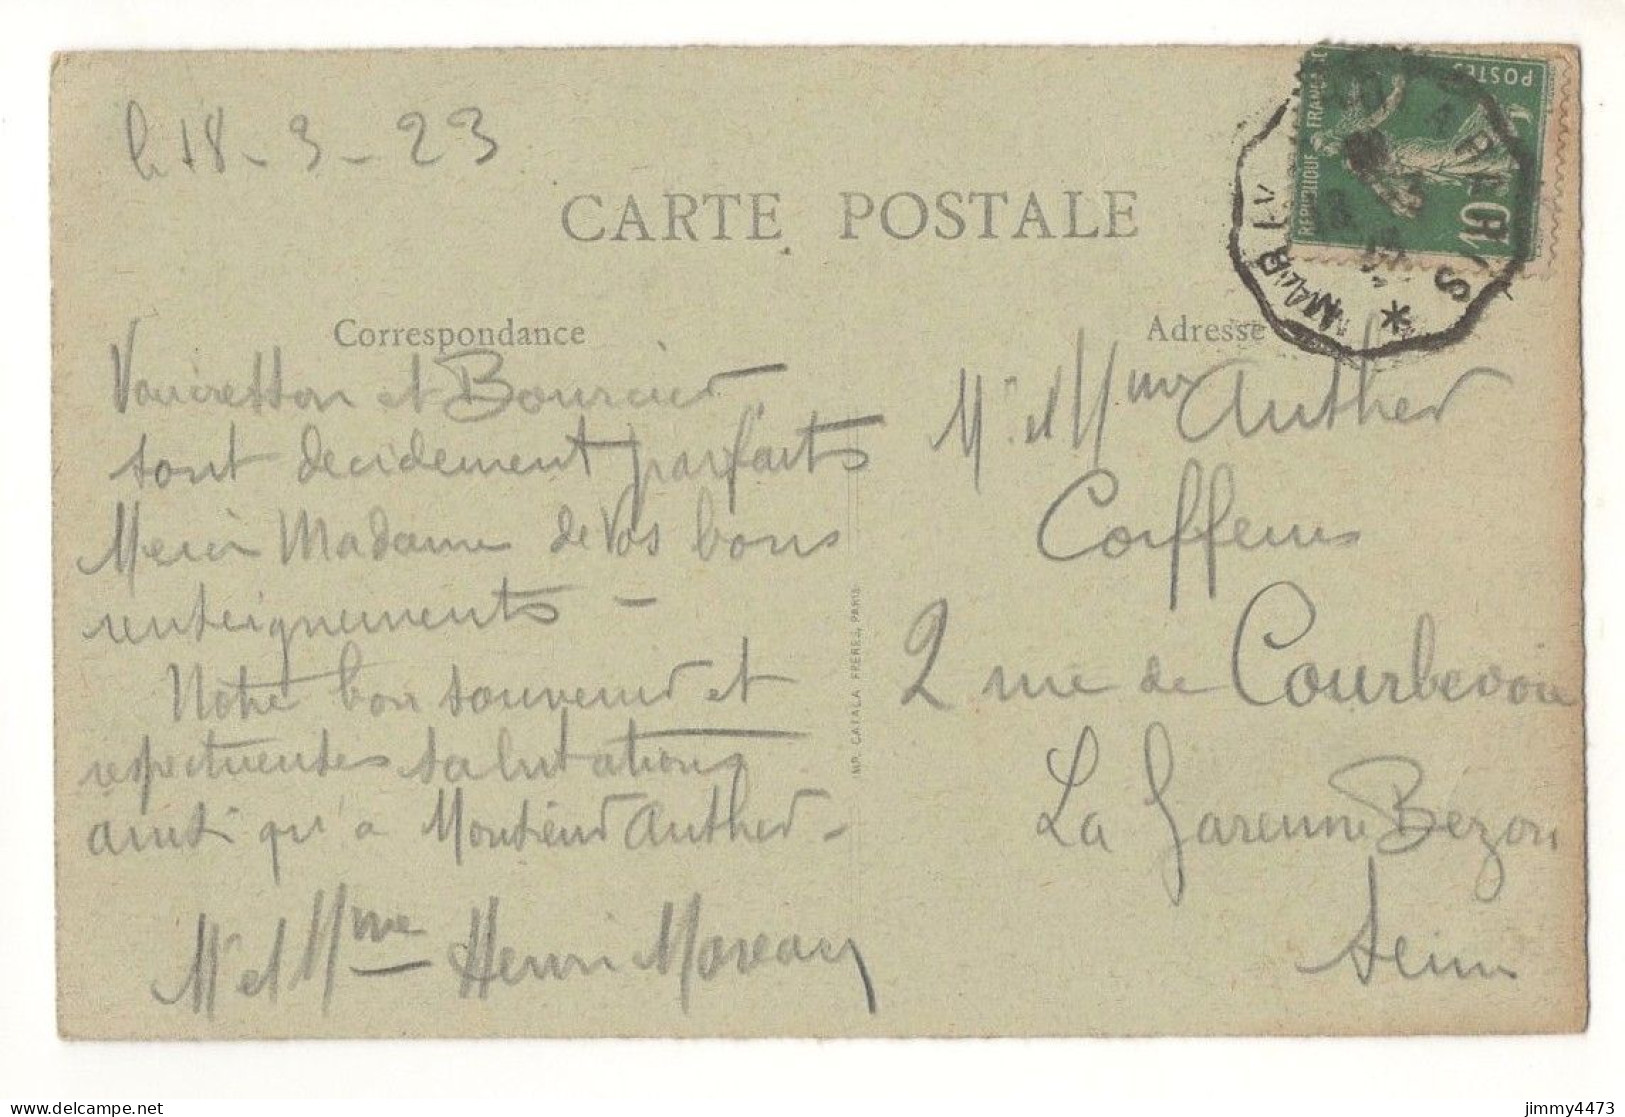 le 18-3-23
CARTE POSTALE
Correspondance
Adresse
Vaucresson et Bourcier
sont decidement parfaits
Merci Madame de vos bons
renseignements -
Notre bon souvenir et
respectueuses salutations
ainsi qu'a Monsieur Auther -
Mr et Mme Henri Moreau
IMP. CATALA FRERES, PARIS
Mr et Mme Auther
Coiffeurs
2 rue de Courbevoie
La Garenne Bezon
Seine
POSTES
REPUBLIQUE FRANCAISE
10c
MARLY
A PARIS
*
delcampe.net
jimmy4473